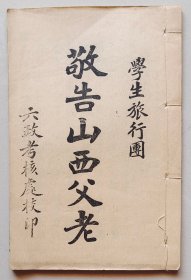 學生旅行團
敬告山西父老
六政考核處校印